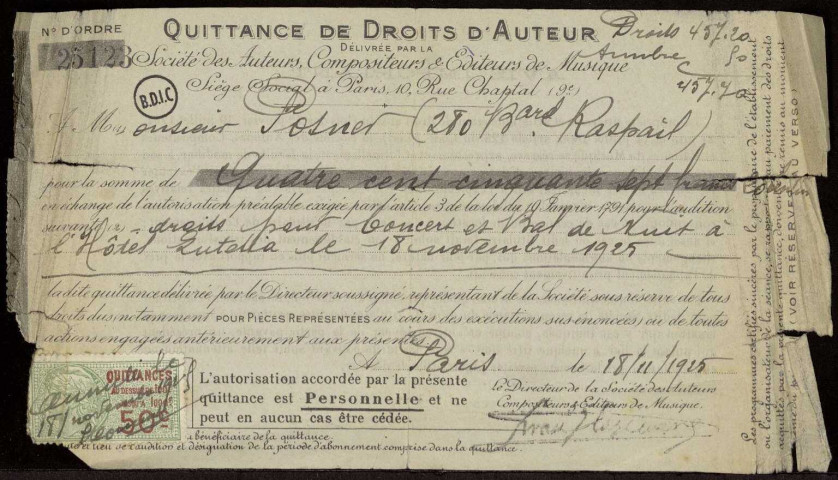 N° D'ORDRE
25123
QUITTANCE DE DROITS D'AUTEUR
DÉLIVRÉE PAR LA
Société des Auteurs, Compositeurs & Editeurs de Musique
Siège Social à Paris, 10, Rue Chaptal (9e)
Droits 457.20
50
457.70
B.D.I.C
Monsieur Posner (280 Bard Raspail)
pour la somme de Quatre cent cinquante sept francs
en échange de l'autorisation préalable exigée par l'article 3 de la loi du 19 Janvier 1791 pour l'audition
suivante droits pour Concert et Bal de Nuit à
l'Hôtel Lutetia le 18 novembre 1925
la dite quittance délivrée par le Directeur soussigné, représentant de la Société sous réserve de tous
droits dus notamment POUR PIÈCES REPRÉSENTÉES au cours des exécutions sus-énoncées) ou de toutes
actions engagées antérieurement aux présentes.
A Paris le 18/11/1925
QUITTANCES
50c
L'autorisation accordée par la présente
quittance est Personnelle et ne
peut en aucun cas être cédée.
Le Directeur de la Société des Auteurs
Compositeurs & Editeurs de Musique.
bénéficiaire de la quittance.
audition et désignation de la période d'abonnement comprise dans la quittance.
Les programmes certifiés sincères par le propriétaire de l'établissement
ou l'organisateur de la séance, se rapportant au paiement des droits
acquittés par la présente quittance, doivent être remis au moment
(VOIR RÉSERVES AU VERSO)